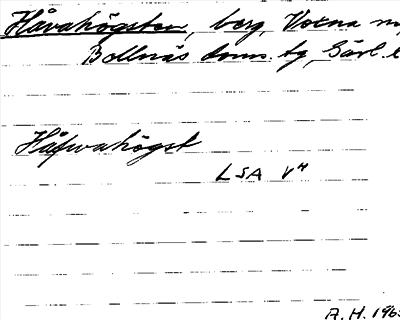 Håvahögsten, berg, Voxna
Bollnäs doms. tg, Gävl. l
Håfvahögst
LSA V4
A.H. 196